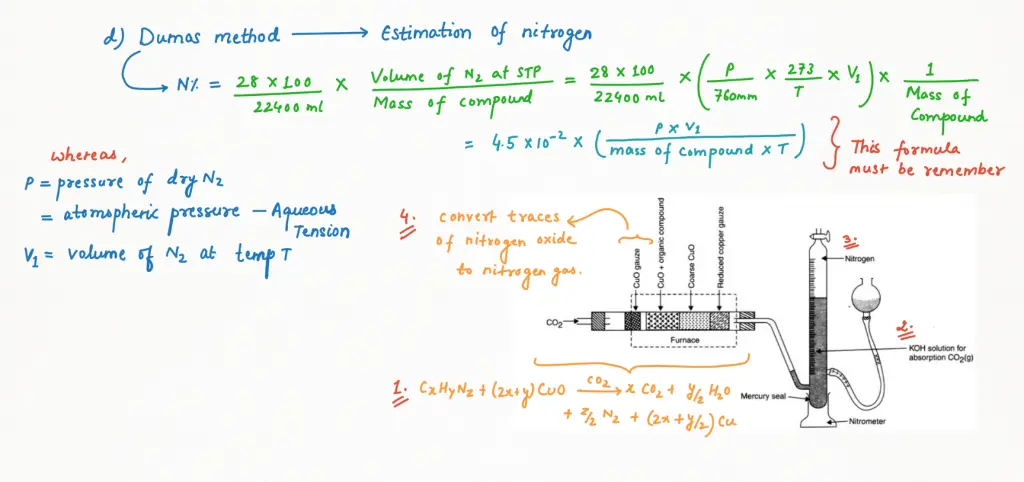 d) Dumas method ⟶ Estimation of nitrogen
N% = 28 × 100 / 22400 ml × Volume of N₂ at STP / Mass of compound = 28 × 100 / 22400 ml × (P / 760mm × 273 / T × V₁) × 1 / Mass of Compound
= 4.5 × 10⁻² × (P × V₁ / mass of compound × T)
This formula
must be remember
whereas,
P = pressure of dry N₂
= atomspheric pressure – Aqueous
Tension
V₁ = volume of N₂ at temp T
4. convert traces
of nitrogen oxide
to nitrogen gas.
CuO gauze
CuO + organic compound
Coarse CuO
Reduced copper gauze
CO₂
Furnace
3.
Nitrogen
2.
KOH solution for
absorption CO₂(g)
Mercury seal
Nitrometer
1. CxHyNz + (2x+y) CuO CO₂⟶ x CO₂ + y/2 H₂O
+ z/2 N₂ + (2x + y/2) Cu